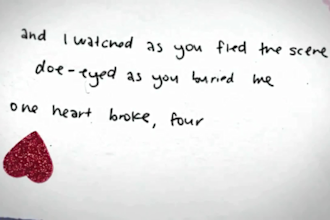 and I watched as you fled the scene
doe-eyed as you buried me
one heart broke, four